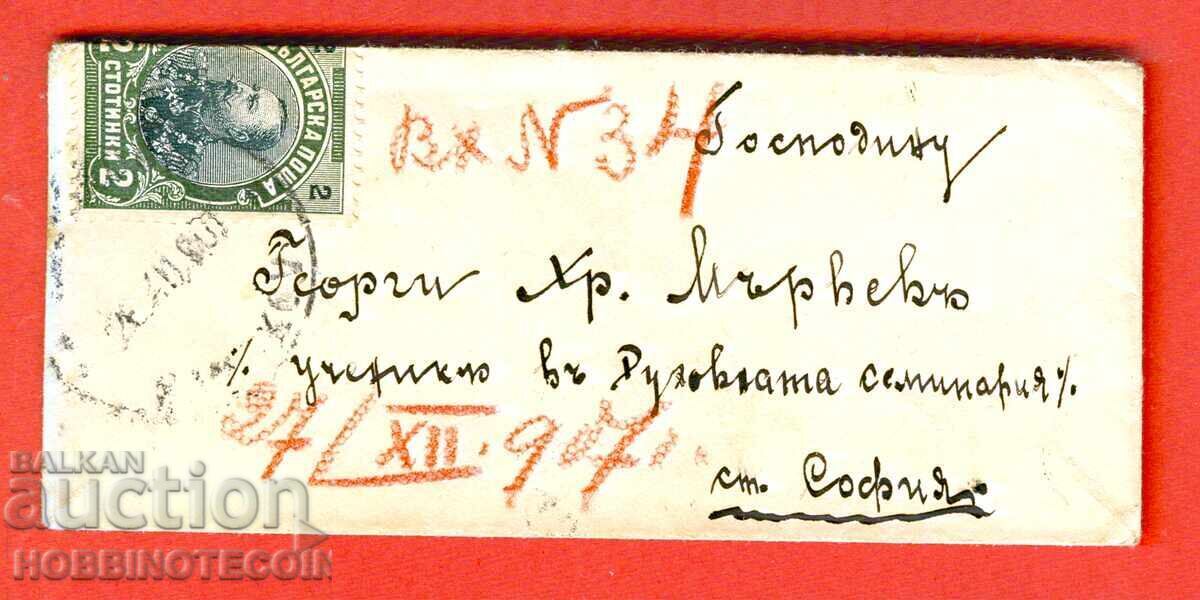 БЪЛГАРСКА ПОЩА
2 СТОТИНКИ 2
2
Вх N 34
Господину
Георги Хр. Мървевъ
% ученикъ въ Духовната семинария %
ст. София
27/XII.907
BALKAN
auction
HOBBINOTECOIN